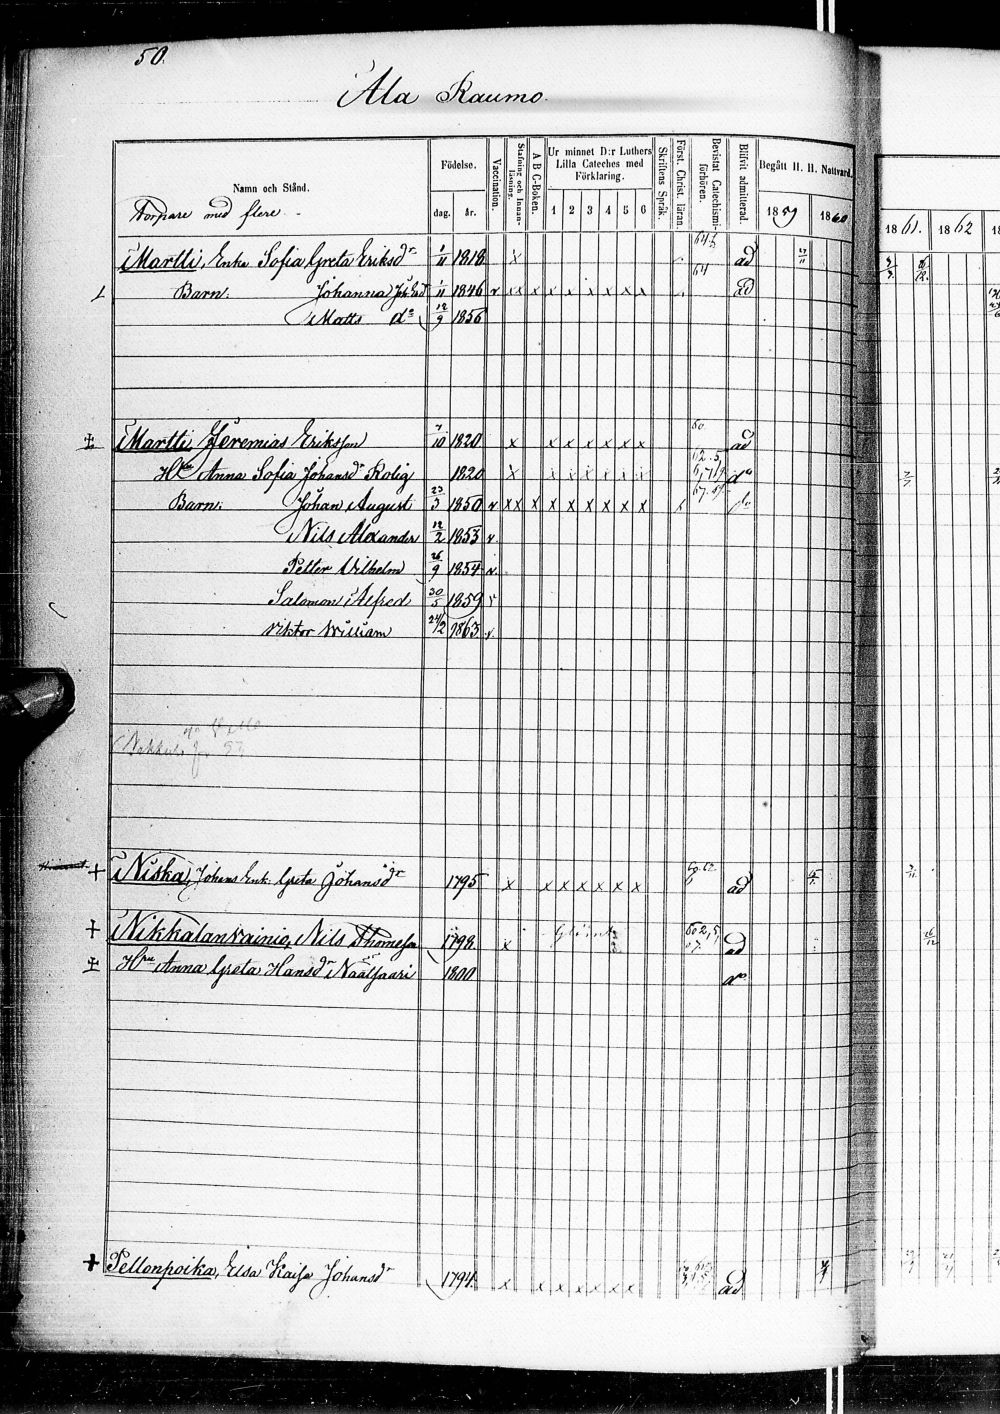 50.
Ala Raumo.
Namn och Stånd.
Torpare med flere
Födelse.
dag. år.
Vaccination.
Stafning och Innan-läsning.
A B C-Boken.
Ur minnet D:r Luthers
Lilla Cateches med
Förklaring.
1 2 3 4 5 6
Skriftens Språk.
Först. Christ. läran.
Bevistat Catechismi-förhören.
Blifvit admitterad.
Begått H. H. Nattvard.
1859 1860
1861. 1862
Martti, Enka Sofia Greta Eriksdr 1/11 1818 x 64 ad
Barn: Johanna 1/11 1846 v x x x x x x x x x ad
Matts do 12/9 1856
Martti Jeremias Eriksson 7/10 1820 x x x x x x x 60 ad
Hru Anna Sofia Johansdr Rolig 1820 x x x x x x x do
Barn: Johan August 23/3 1850 v x x x x x x x x x
Nils Alexander 12/2 1853 v
Petter Wilhelm 26/9 1854 v
Salomon Alfred 30/5 1859 v
Viktor William 24/2 1863 v
+ Niska, Johans Enk. Greta Johansdr 1795 x x x x x x x ad
+ Nikkalanvainio, Nils Thomesson 1798 x Glömt ad
Hru Anna Greta Hansdr Naalisaari 1800 do
+ Pellonpoika, Elsa Kaisa Johansdr 1794 x x x x x x x ad